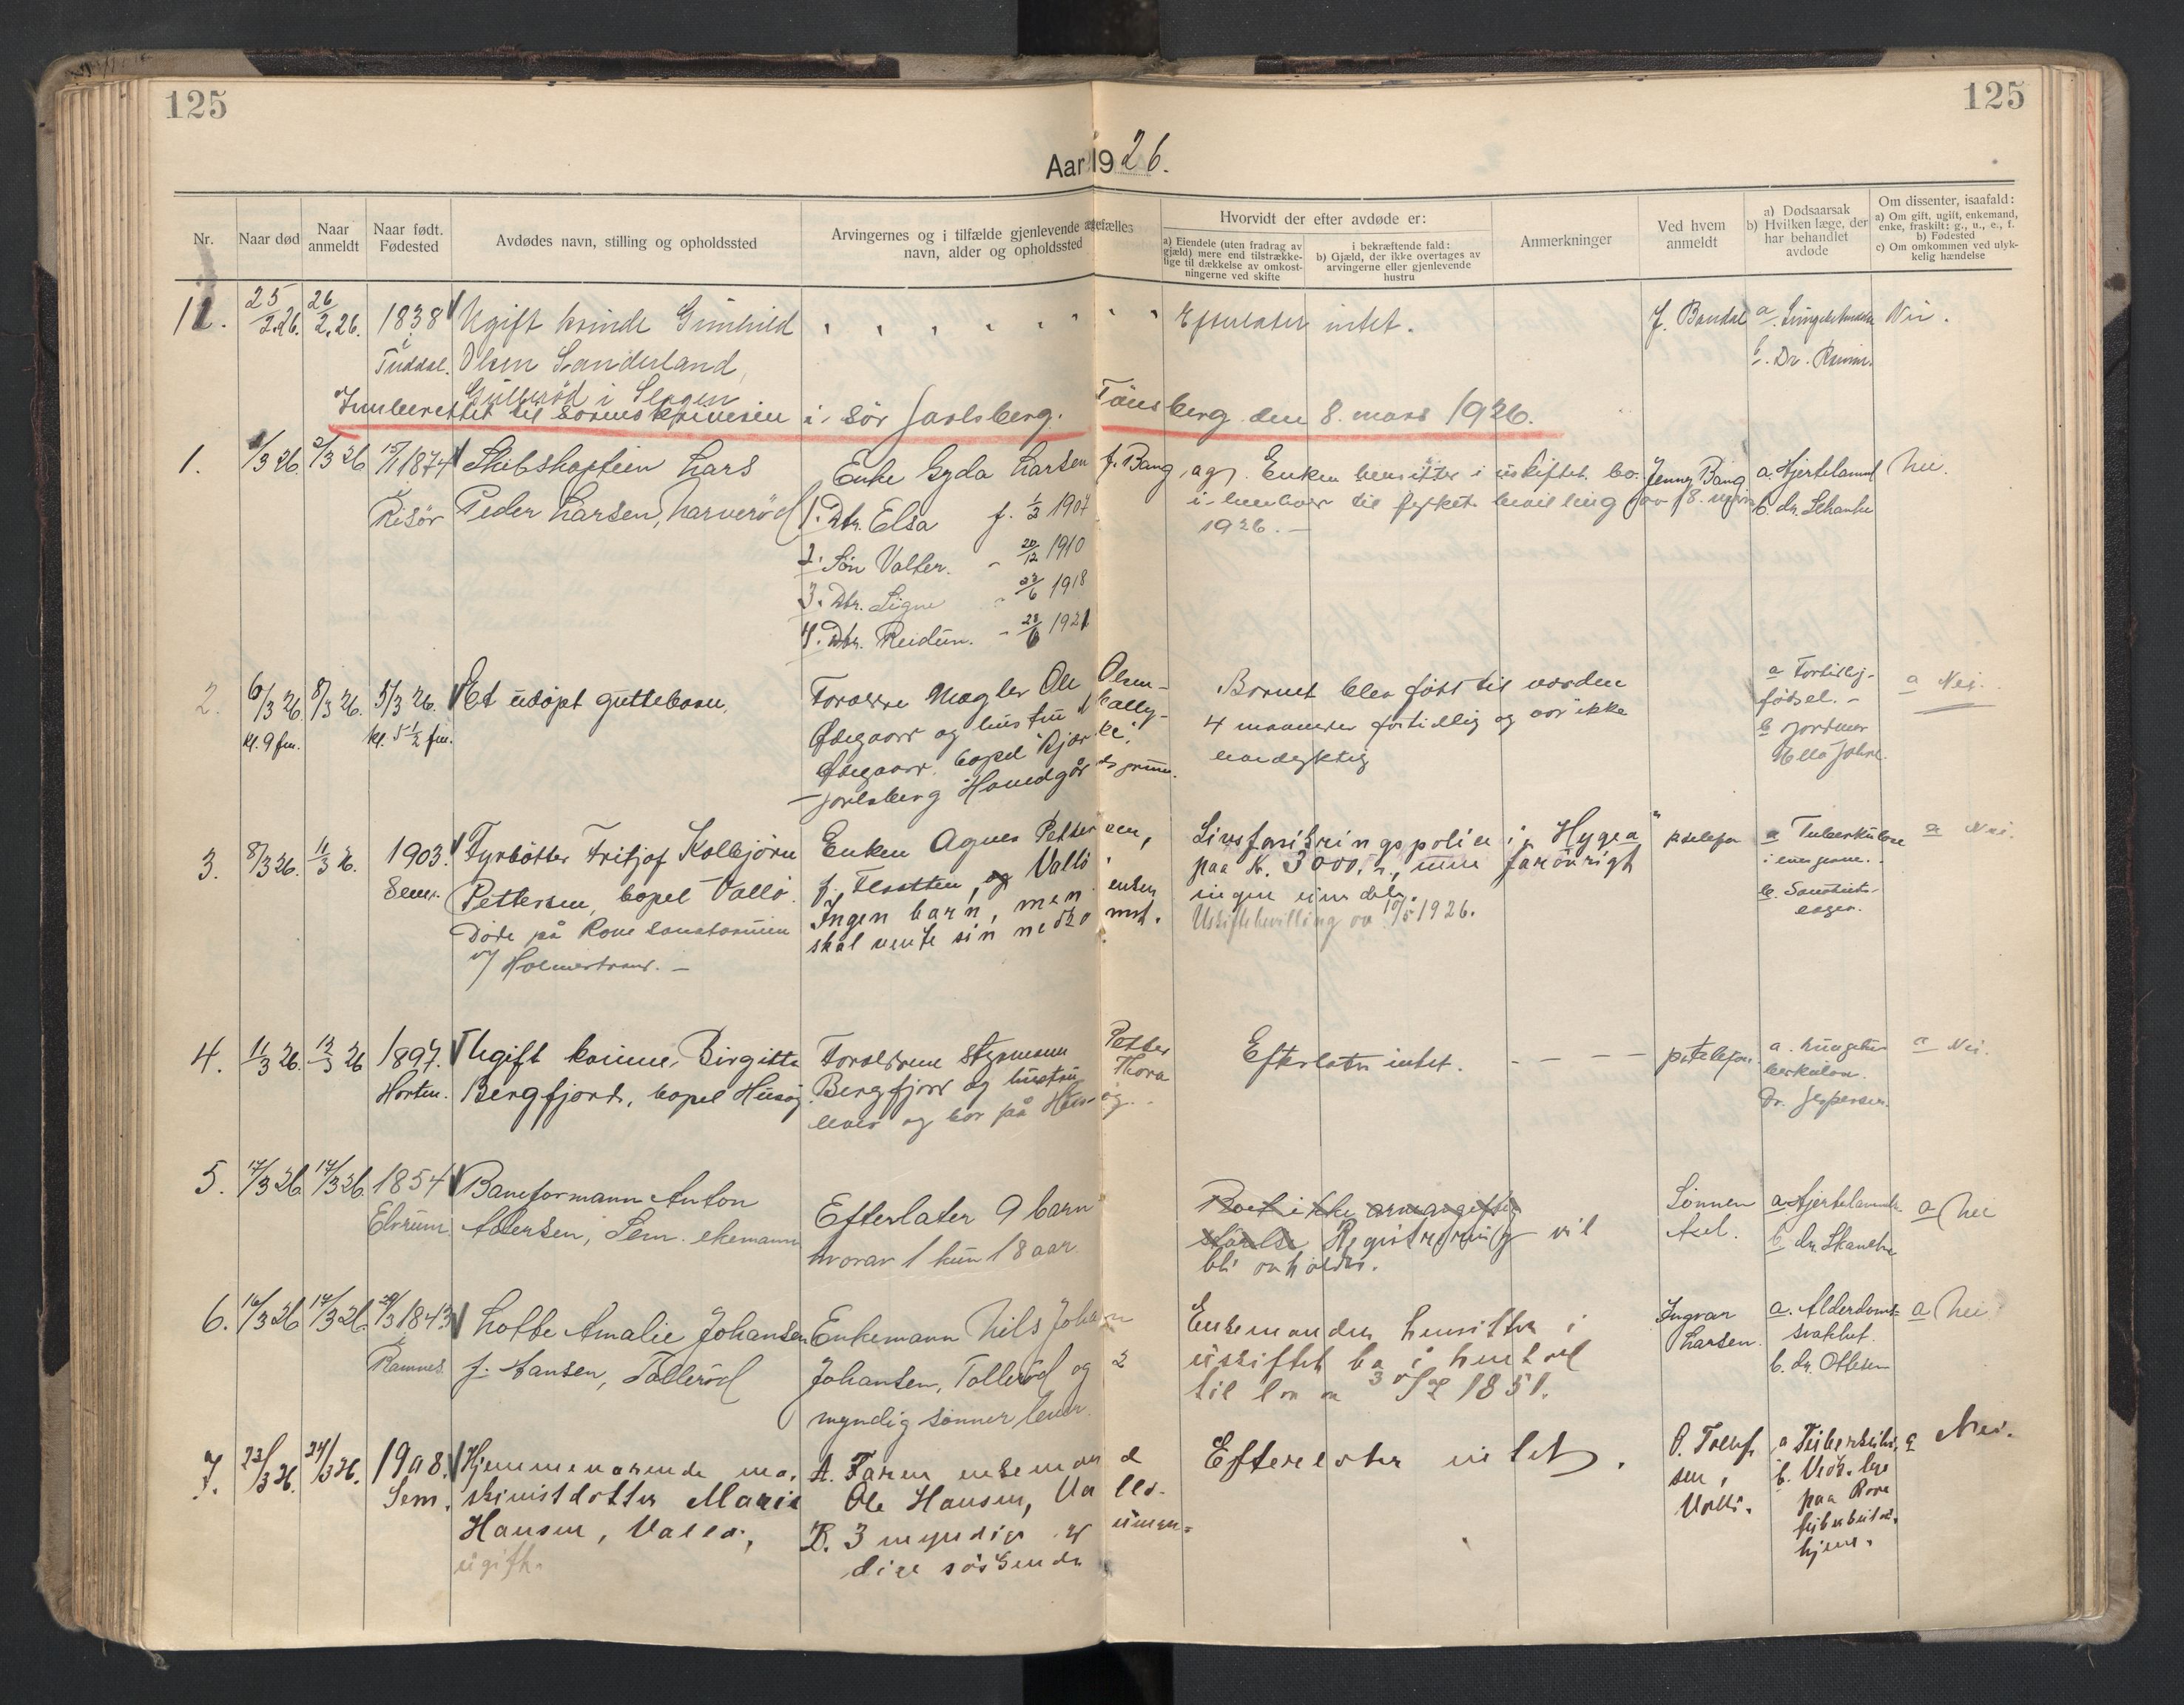 125
125
Aar 1926.
Nr.
Naar død
Naar anmeldt
Naar født. Fødested
Avdødes navn, stilling og opholdssted
Arvingernes og i tilfælde gjenlevende ægtefælles
navn, alder og opholdssted
Hvorvidt der efter avdøde er:
a) Eiendele (uten fradrag av
gjæld) mere end tilstrække-
lige til dækkelse av omkost-
ningerne ved skifte
i bekræftende fald:
b) Gjæld, der ikke overtages av
arvingerne eller gjenlevende
hustru
Anmerkninger
Ved hvem
anmeldt
a) Dødsaarsak
b) Hvilken læge, der
har behandlet
avdøde
Om dissenter, isaafald:
a) Om gift, ugift, enkemand,
enke, fraskilt: g., u., e., f.
b) Fødested
c) Om omkommen ved ulyk-
kelig hændelse
11. 25/2.26. 26/2.26. 1838 Ugift kvinde Gunhild " " " " " " " Efterlater intet. J. Bandal a. Nei.
i Tuddal. Olsen Sanderland, b. Dr.
i Slagen
Innberettet til sorenskriveren i Sör Jarlsberg. Tönsberg den 8. mars 1926.
1. 2/3 26 15/11 1874 Skibskaptein Lars Enke Gyda Larsen f. Bang, Enken hensitter i uskiftet bo. Jenny Bang a. Hjertelammelse Nei.
i Risör Peder Larsen, Narveröd 1. Dtr. Elsa f. 1907 i henhold til bevilling av 18. b. dr. Schanke
1926. —
2. Sön Valter. - 20/12 1910
3. Dtr. Signe - 23/6 1918
4. Dtr. Reidun. - 28/6 1921
2. 6/3 26 8/3 26. 5/3 26. Et udöpt guttebarn. Forældre Ole Olsen Barnet blev født til verden a Fortidlig- a Nei.
kl. 9 fm. kl. 5 1/2 fm. Ødegaard og hustru 4 maaneder fortidlig og var ikke fødsel. -
Ødegaard, bopel levedyktig b Jordmor
Jarlsberg Hovedgård Ella
3. 8/3 26. 11/3 26. 1903. Fyrböter Fritjof Kolbjörn Enken Agnes Pettersen, Livsforsikringspolise i "Hygea" pr telefon a Tuberkulose a Nei.
Sem. Pettersen, bopel Vallö. f. Vallö. paa kr. 3000.-, men forövrigt i lungerne.
Döde på Rove Sanatorium Ingen barn, men enken ingen eiendele. b. Sanatorie-
v/ Holmestrand. — skal vente sin nedkomst. Uskiftebevilling av 10/5 1926.
4. 11/3 26. 12/3 26 1897. Ugift kvinne, Birgitte Forældrene styrmann Petter Efterlater intet. - - - - pr telefon a. Lungetu- a Nei.
Horten. Bergfjord, bopel Husöy. Bergfjord og hustru Thora berkulose.
lever og bor på Husöy. Dr. Jespersen.
5. 17/3 26 17/3 26. 1854 Baneformann Anton Efterlater 9 barn Boet ikke Sönnen a. Hjertelammelse a Nei
Elvrum. Andersen, Sem. ekemann hvorav 1 kun 18 aar. Registrering vil Axel. b dr. Skanche
bli avholdt.
6. 16/3 26 17/3 26. 1843 Lotte Amalie Johansen Enkemann Nils Johan Enkemanden hensitter i Ingvar a. Alderdoms- a Nei
i Ramnes f. Hansen, Tolleröd Johansen, Tolleröd og 2 uskiftet bo i henhold Larsen. svakhet.
myndig sönner lever. til lov av 30/7 1851. b. dr. Ottesen
7. 23/3 26. 24/3 26. 1908. Hjemmeværende ma- A. Faren enkemand Efterlater intet. O. Tollef- a Tuberkulose a Nei.
Sem. skinistdotter Marie Ole Hansen, Vallö. sen, b. Vedk. læge
Hansen, Vallö, B. 3 myndige og umyn- Vallö. paa Rove
ugift. dige söskende hjem.